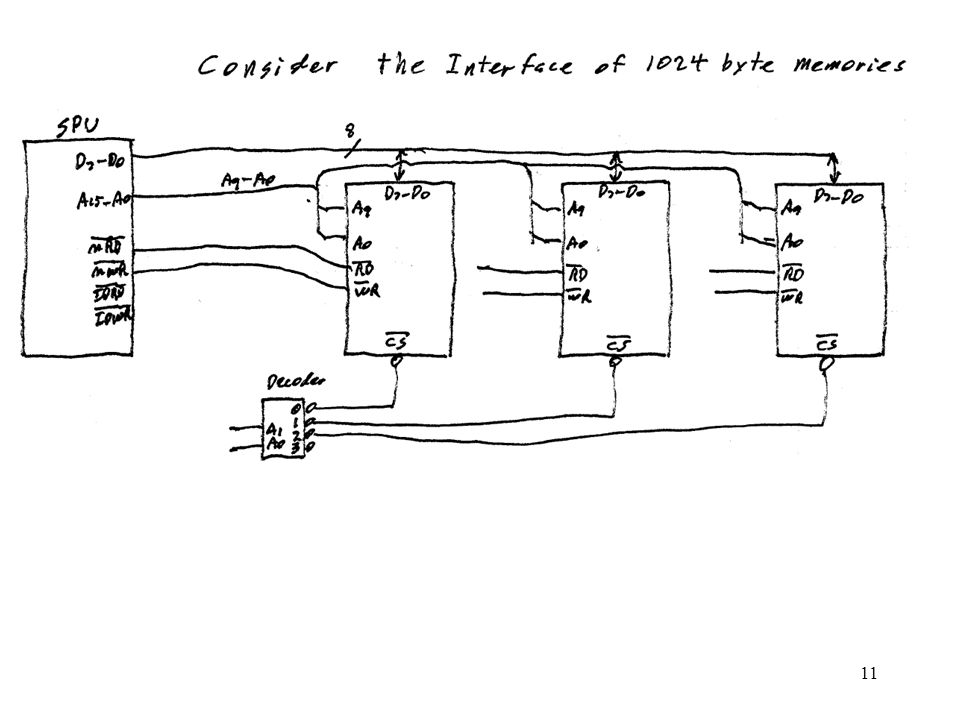 Consider the Interface of 1024 byte memories
SPU
8
D7-D0
A15-A0
A9-A0
MRD
MWR
IORD
IOWR
D7-D0
A9
A0
RD
WR
CS
D7-D0
A9
A0
RD
WR
CS
D7-D0
A9
A0
RD
WR
CS
Decoder
A1
A0
0
1
2
3
11